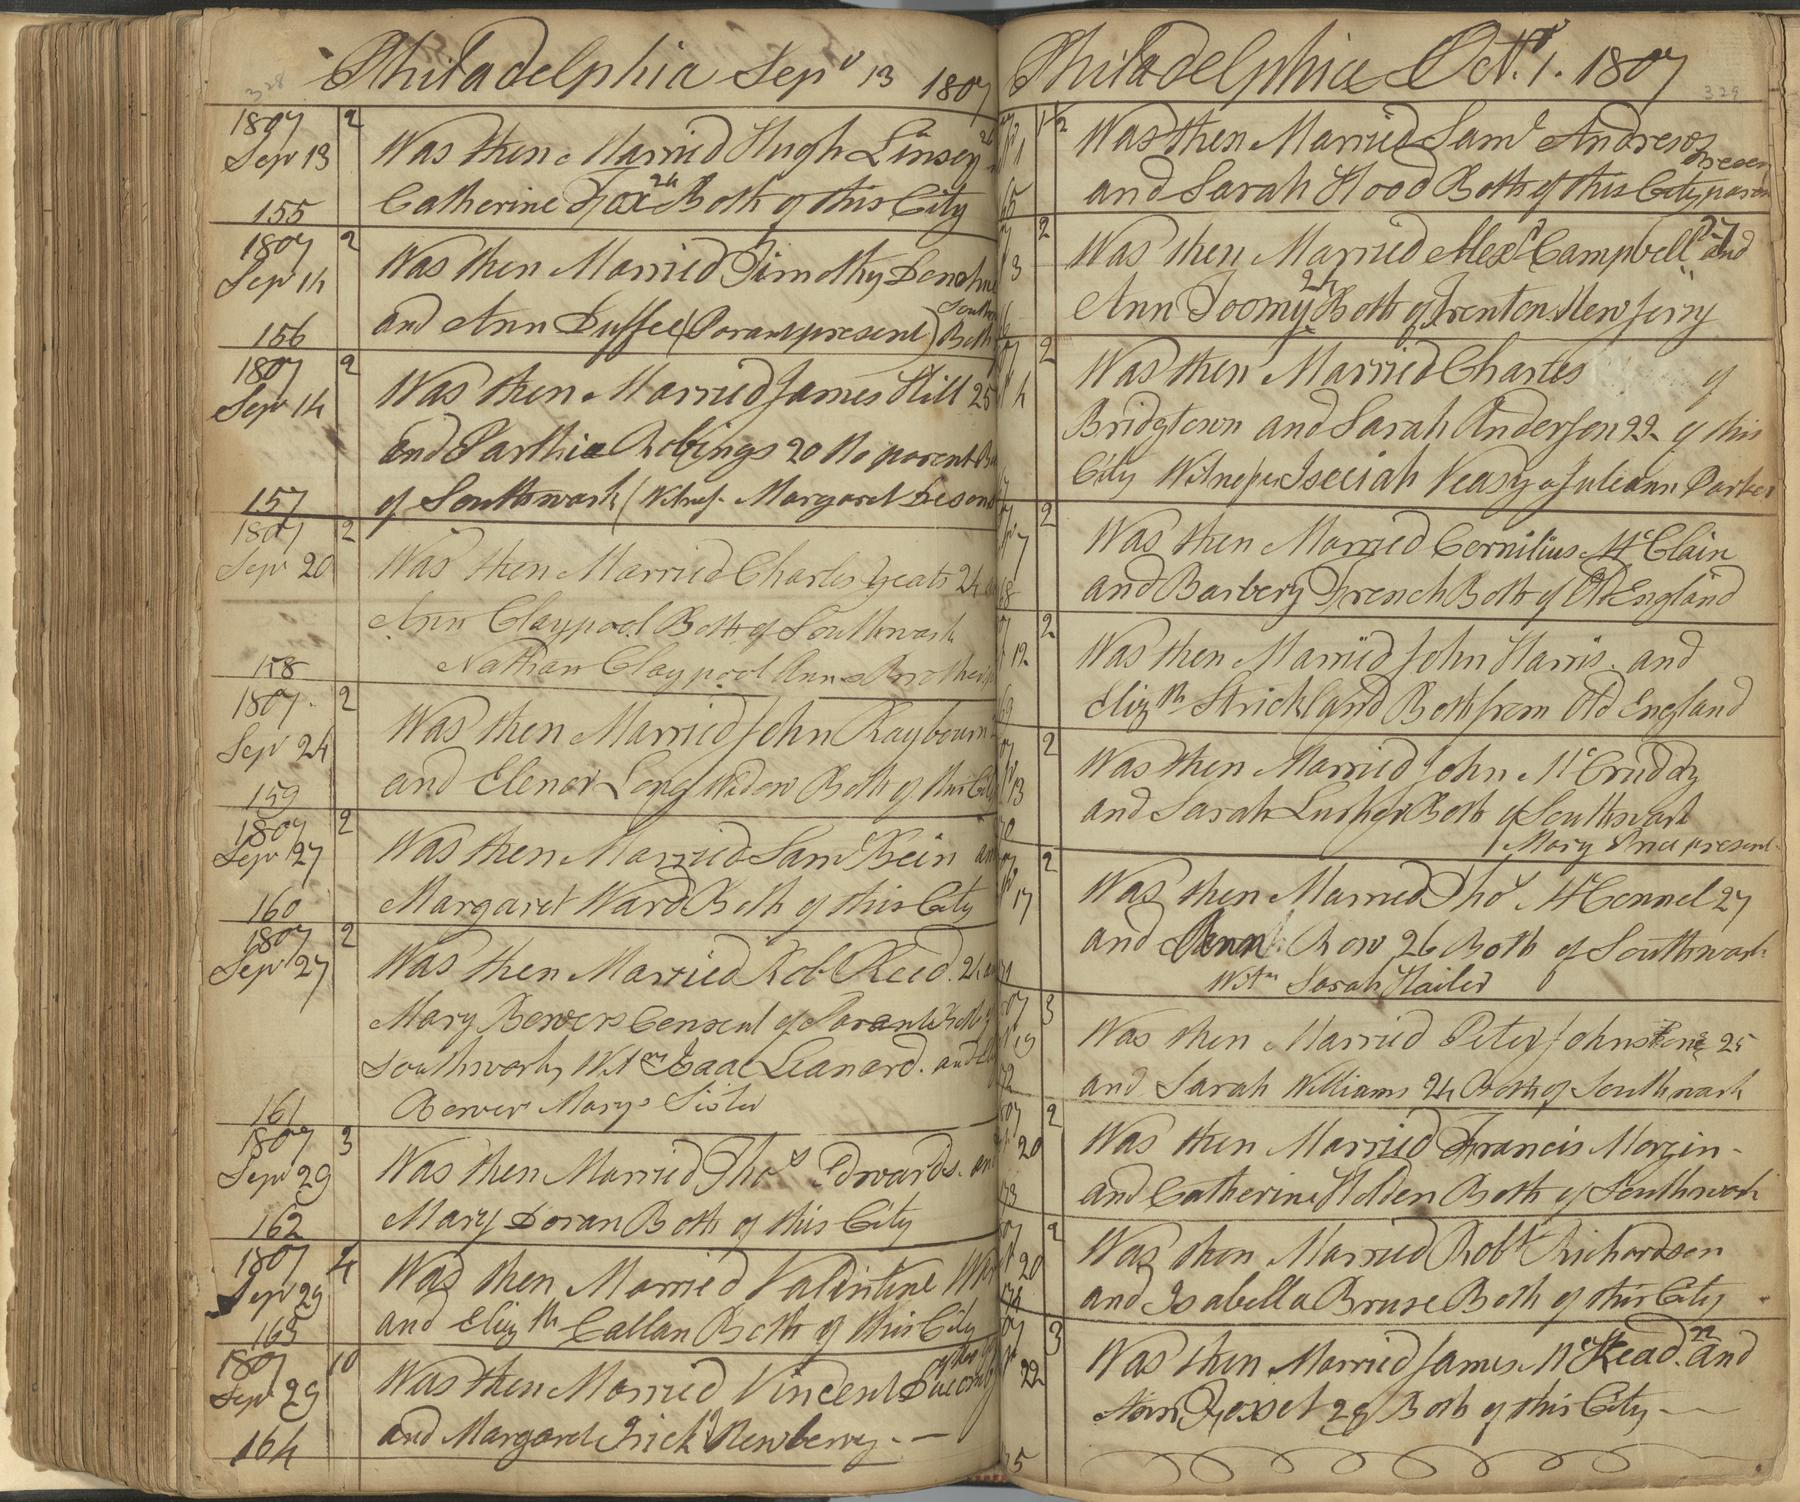 328
Philadelphia Sepr 13 1807
1807 2
Sepr 13
Was then Married Hugh Linsey 26
Catherine Fox 24 Both of this City
155
1807 2
Sepr 14
Was then Married Timothy Donohue
and Ann Duffee (Parant present) Both
South
156
1807 2
Sepr 14
Was then Married James Hill 25
and Parthia Robings 20 No parent
of Southwark (Witness Margaret
157
1807 2
Sepr 20
Was then Married Charles Yeats 24
Ann Claypool Both of Southwark
Nathan Claypool Anns Brother
158
1807 2
Sepr 24
Was then Married John Raybourn
and Elenor Long Widow Both of this City
159
1807 2
Sepr 27
Was then Married Saml Bein and
Margaret Ward Both of this City
160
1807 2
Sepr 27
Was then Married Rob Reed 24
Mary Bowers Consent of Parants Both of
Southwark Witn Isaac Leanard and
Bower Marys Sister
161
1807 3
Sepr 29
Was then Married Thos Edwards and
Mary Doran Both of this City
162
1807 4
Sepr 29
Was then Married Valintine
and Elizth Callan Both of this City
163
1807 10
Sepr 29
Was then Married Vincent
of this
and Margaret Frick Newberry
164
Philadelphia Octr 1. 1807
329
1 1/2
Was then Married Saml Andrews
and Sarah Hood Both of this City
2
3
Was then Married Alexr Campbell 27 and
Ann Toomy 24 Both of Trenton New Jersy
2
4
Was then Married Charles of
Bridgtown and Sarah Anderson 22 of this
City Witneses Iseciah Veasy & Juleann Parker
2
7
Was then Married Cornilius McClain
and Barbery French Both of Old England
2
12
Was then Married John Harris and
Elizth Strickland Both from Old England
2
13
Was then Married John McCruddy
and Sarah Lusher Both of Southwark
Mary Price present
2
17
Was then Married Thos McConnel 27
and Row 26 Both of Southwark
Witn Sarah Hailer
3
19
Was then Married Peter Johnstone 25
and Sarah Williams 24 Both of Southwark
2
20
Was then Married Francis Morgin
and Catherine Holden Both of Southwark
2
20
Was then Married Robt Richardson
and Isabella Bruse Both of this City
3
22
Was then Married James McKead 22 and
Ann 28 Both of this City